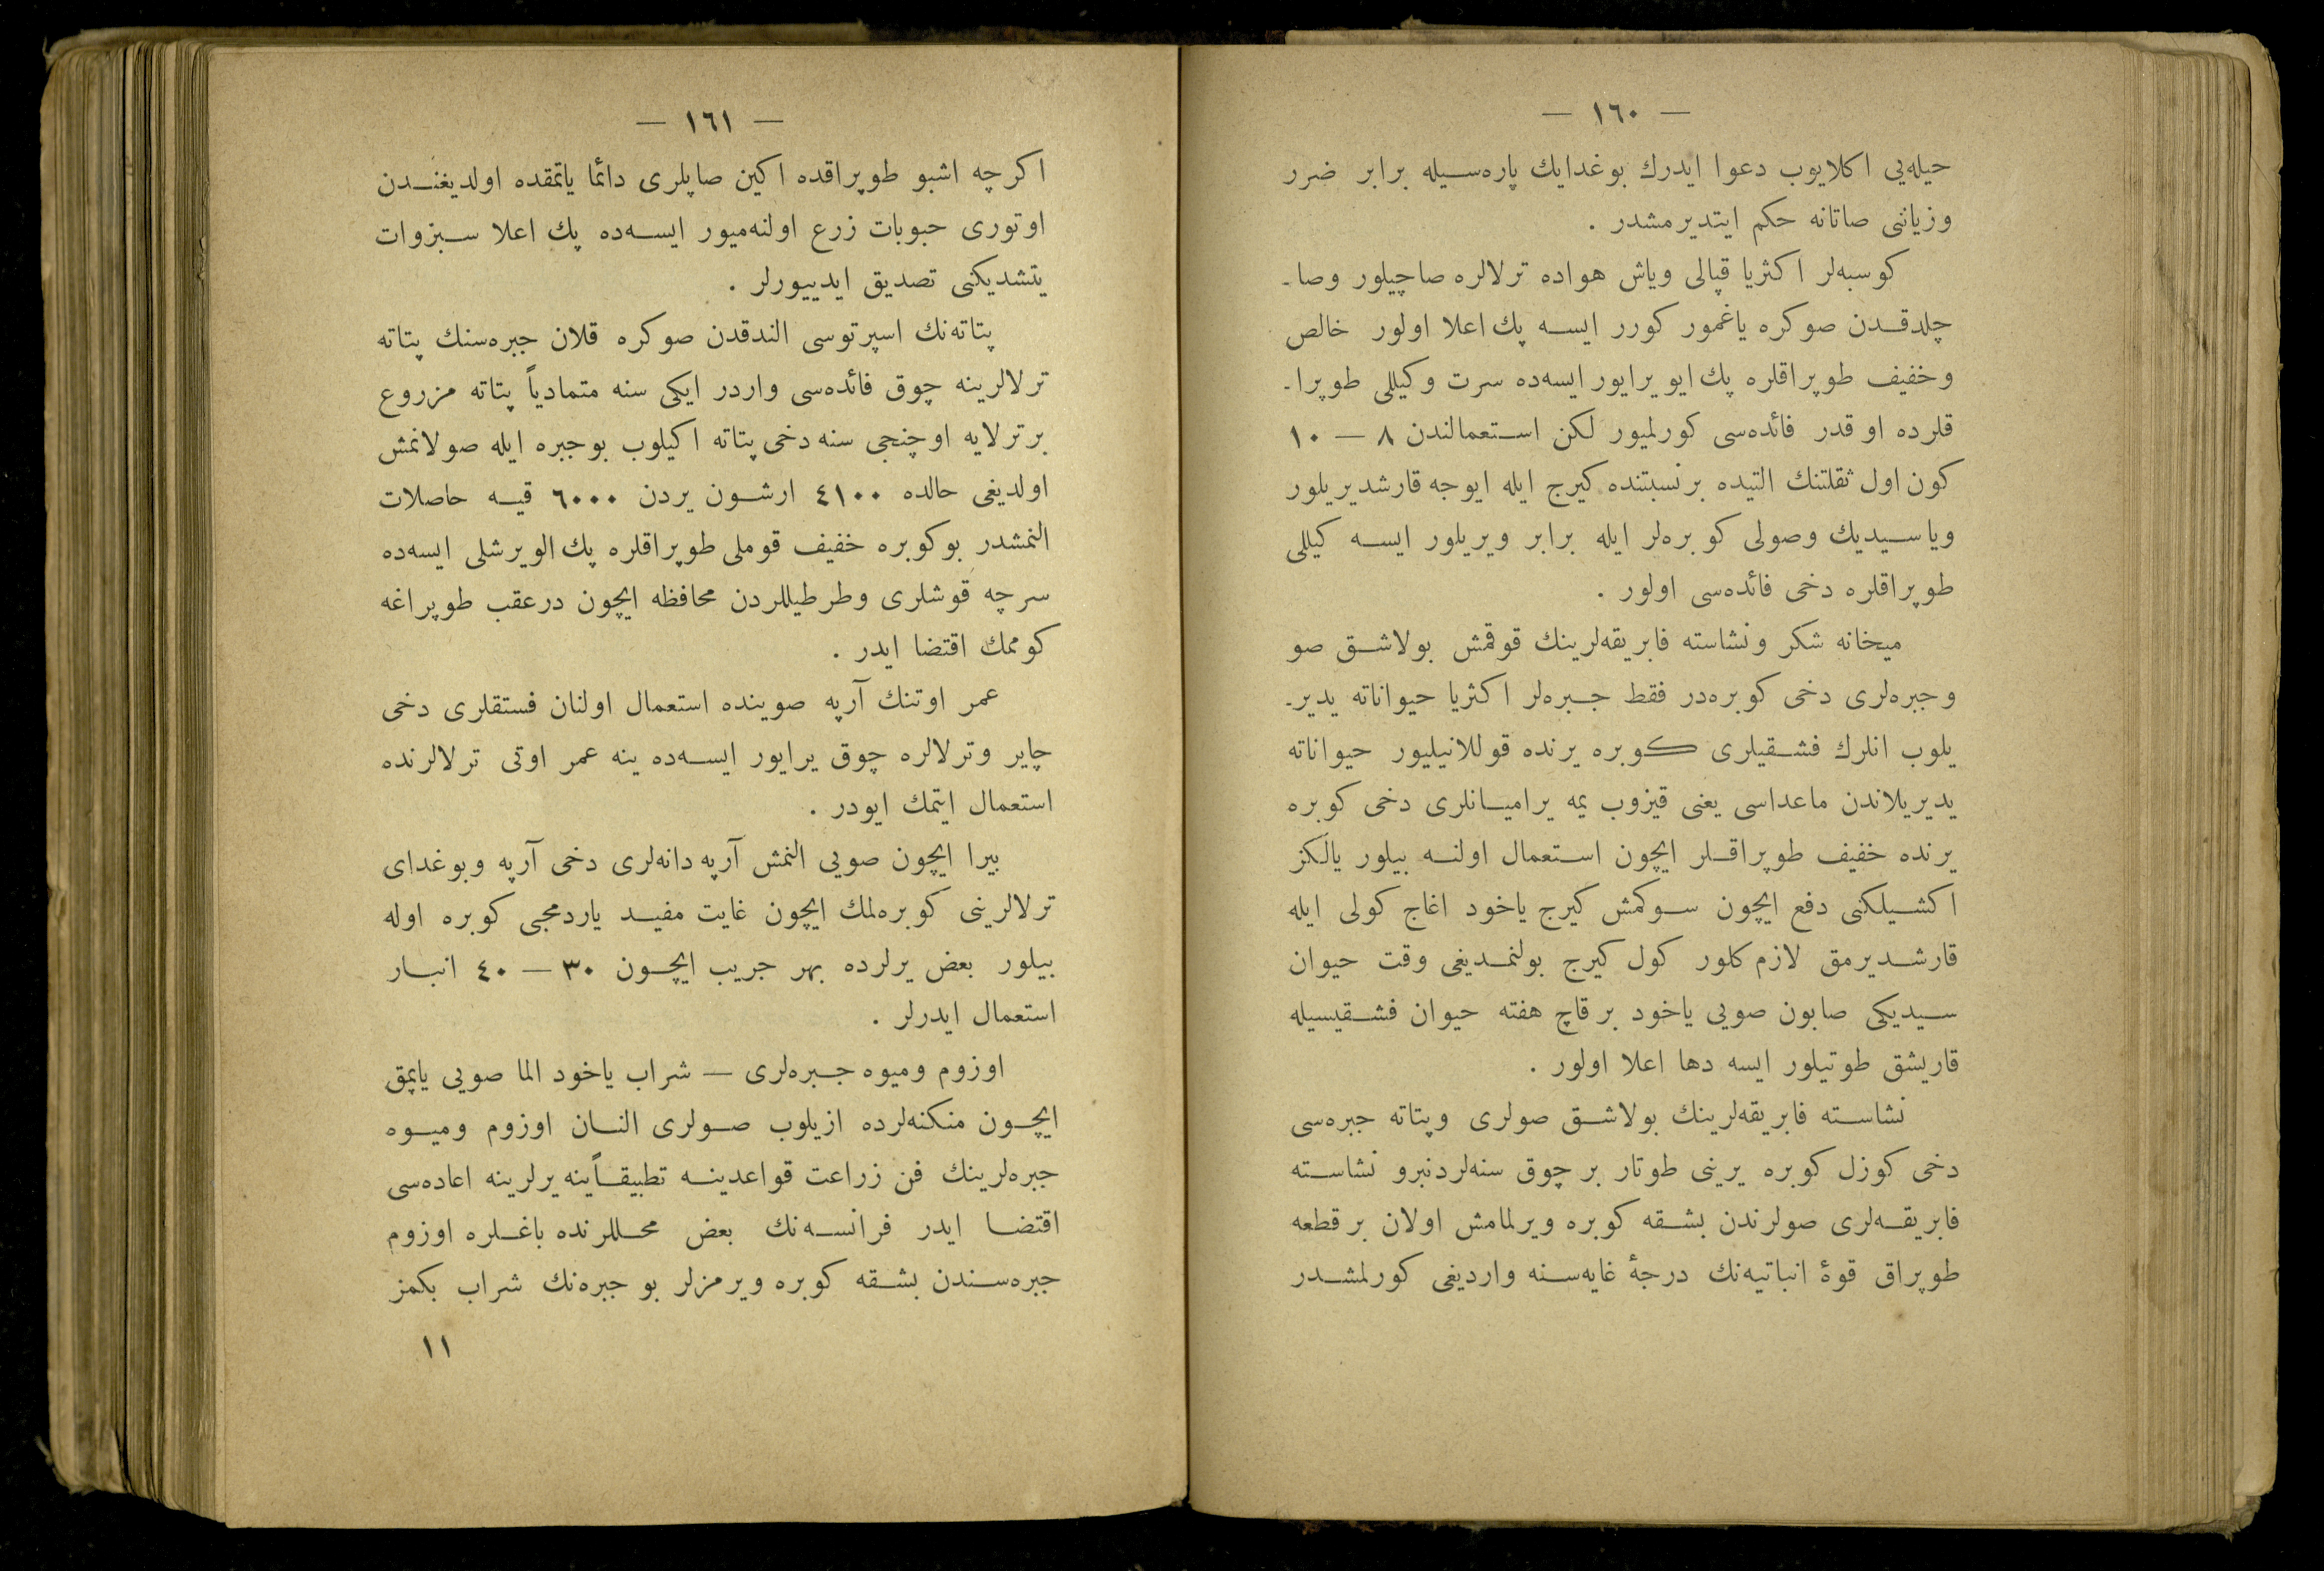 — ١٦٠ —
حیله‌یی اکلایوب دعوا ایدرك بوغدایك پاره‌سیله برابر ضرر
وزیاننی صاتانه حکم ایتدیرمشدر .
کوسبه‌لر اکثریا قپالی ویاش هواده ترلالره صاچیلور وصا-
چلدقدن صوکره یاغمور کورر ایسه پك اعلا اولور خالص
وخفیف طوپراقلره پك ایو یرایور ایسه‌ده سرت وکیللی طوپرا-
قلرده او قدر فائده‌سی کورلمیور لکن استعمالندن ٨ — ١٠
کون اول ثقلتنك التیده برنسبتنده کیرج ایله ایوجه قارشدیریلور
ویا سیدیك وصولی کوبره‌لر ایله برابر ویریلور ایسه کیللی
طوپراقلره دخی فائده‌سی اولور .
میخانه شکر ونشاسته فابریقه‌لرینك قوقمش بولاشق صو
وجبره‌لری دخی کوبره‌در فقط جبره‌لر اکثریا حیواناته یدیر-
یلوب انلرك فشقیلری کوبره یرنده قوللانیلیور حیواناته
یدیریلاندن ماعداسی یعنی قیزوب یمه یرامیانلری دخی کوبره
یرنده خفیف طوپراقلر ایچون استعمال اولنه بیلور یالکز
اکشیلکنی دفع ایچون سوکمش کیرج یاخود اغاج کولی ایله
قارشدیرمق لازم کلور کول کیرج بولنمدیغی وقت حیوان
سیدیکی صابون صویی یاخود بر قاچ هفته حیوان فشقیسیله
قاریشق طوتیلور ایسه دها اعلا اولور .
نشاسته فابریقه‌لرینك بولاشق صولری وپتاته جبره‌سی
دخی کوزل کوبره یرینی طوتار بر چوق سنه‌لردنبرو نشاسته
فابریقه‌لری صولرندن بشقه کوبره ویرلمامش اولان بر قطعه
طوپراق قوهٔ انباتیه‌نك درجهٔ غایه‌سنه واردیغی کورلمشدر
— ١٦١ —
اکرچه اشبو طوپراقده اکین صاپلری دائما یاتمقده اولدیغندن
اوتوری حبوبات زرع اولنه‌میور ایسه‌ده پك اعلا سبزوات
یتشدیکنی تصدیق ایدییورلر .
پتاته‌نك اسپرتوسی الندقدن صوکره قلان جبره‌سنك پتاته
ترلالرینه چوق فائده‌سی واردر ایکی سنه متمادیاً پتاته مزروع
بر ترلایه اوچنجی سنه دخی پتاته اکیلوب بوجبره ایله صولانمش
اولدیغی حالده ٤١٠٠ ارشون یردن ٦٠٠٠ قیه حاصلات
النمشدر بوکوبره خفیف قوملی طوپراقلره پك الویرشلی ایسه‌ده
سرچه قوشلری وطرطیللردن محافظه ایچون درعقب طوپراغه
کوممك اقتضا ایدر .
عمر اوتنك آرپه صوینده استعمال اولنان فستقلری دخی
چایر وترلالره چوق یرایور ایسه‌ده ینه عمر اوتی ترلالرنده
استعمال ایتمك ایودر .
بیرا ایچون صویی النمش آرپه دانه‌لری دخی آرپه وبوغدای
ترلالرینی کوبره‌لمك ایچون غایت مفید یاردمجی کوبره اوله
بیلور بعض یرلرده بهر جریب ایچون ٣٠ — ٤٠ انبار
استعمال ایدرلر .
اوزوم ومیوه جبره‌لری — شراب یاخود الما صویی یاپمق
ایچون منکنه‌لرده ازیلوب صولری النان اوزوم ومیوه
جبره‌لرینك فن زراعت قواعدینه تطبیقاً ینه یرلرینه اعاده‌سی
اقتضا ایدر فرانسه‌نك بعض محللرنده باغلره اوزوم
جبره‌سندن بشقه کوبره ویرمزلر بو جبره‌نك شراب بکمز
١١